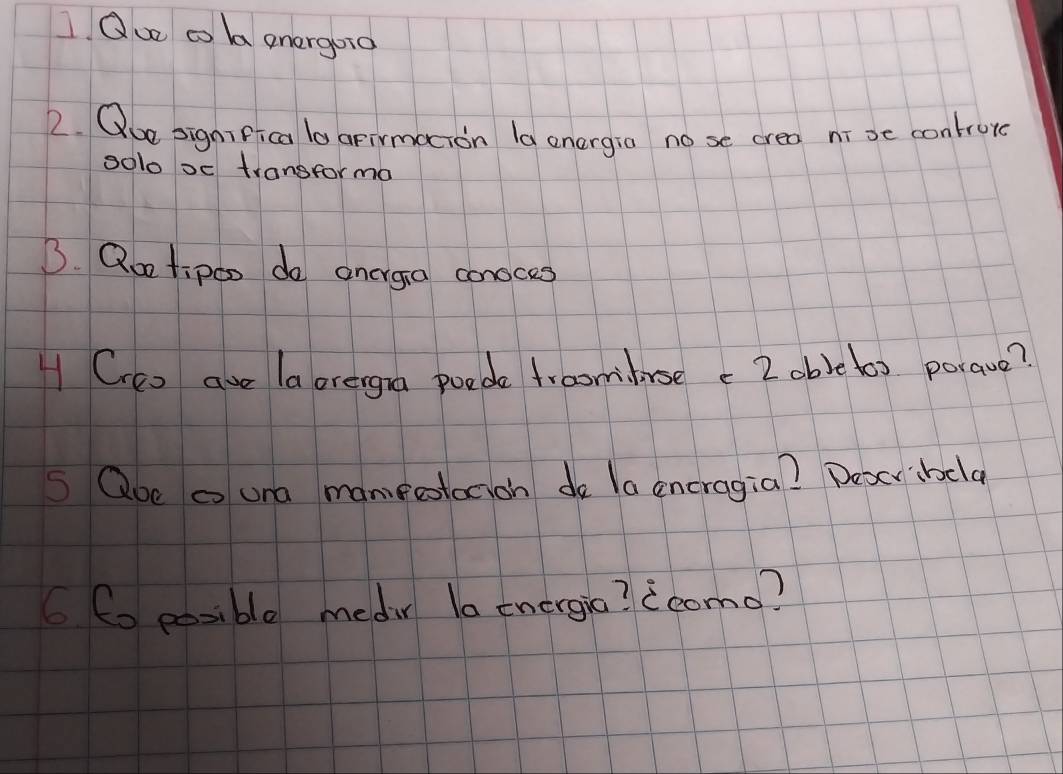 1. Que es la energuia
2. Que significa la afirmación la energia no se crea ni se
solo se transforma
3. Que tipos de energia conoces
4 Crees que la energia puede trasmitirse 2 objetos porque?
5 Que es una manifestación de la eneragia? Describela
6. Es posible medir la energia? ¿como?